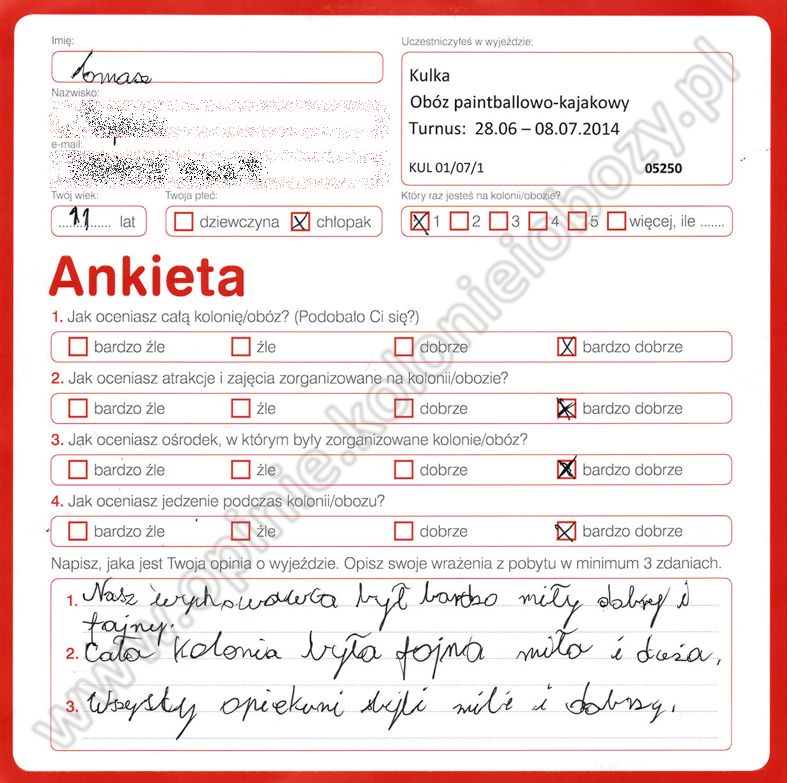 Imię:
Tomasz
Nazwisko:
e-mail:
Twój wiek:
11 lat
Twoja płeć:
dziewczyna chłopak
Uczestniczyłeś w wyjeździe:
Kulka
Obóz paintballowo-kajakowy
Turnus: 28.06 – 08.07.2014
KUL 01/07/1 05250
Który raz jesteś na kolonii/obozie?
1 2 3 4 5 więcej, ile .......
Ankieta
1. Jak oceniasz całą kolonię/obóz? (Podobało Ci się?)
bardzo źle źle dobrze bardzo dobrze
2. Jak oceniasz atrakcje i zajęcia zorganizowane na kolonii/obozie?
bardzo źle źle dobrze bardzo dobrze
3. Jak oceniasz ośrodek, w którym były zorganizowane kolonie/obóz?
bardzo źle źle dobrze bardzo dobrze
4. Jak oceniasz jedzenie podczas kolonii/obozu?
bardzo źle źle dobrze bardzo dobrze
Napisz, jaka jest Twoja opinia o wyjeździe. Opisz swoje wrażenia z pobytu w minimum 3 zdaniach.
1. Nasz wychowawca był bardzo miły dobry i
fajny.
2. Cała kolonia była fajna miła i duża.
3. Wszyscy opiekuni byli mili i dobrzy.
www.opinie.kolonieiobozy.pl